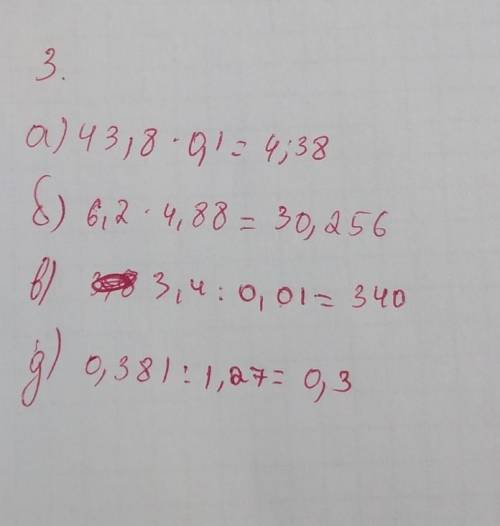 3.
а) 43,8 · 0,1 = 4,38
б) 6,2 · 4,88 = 30,256
в) 3,4 : 0,01 = 340
д) 0,381 : 1,27 = 0,3